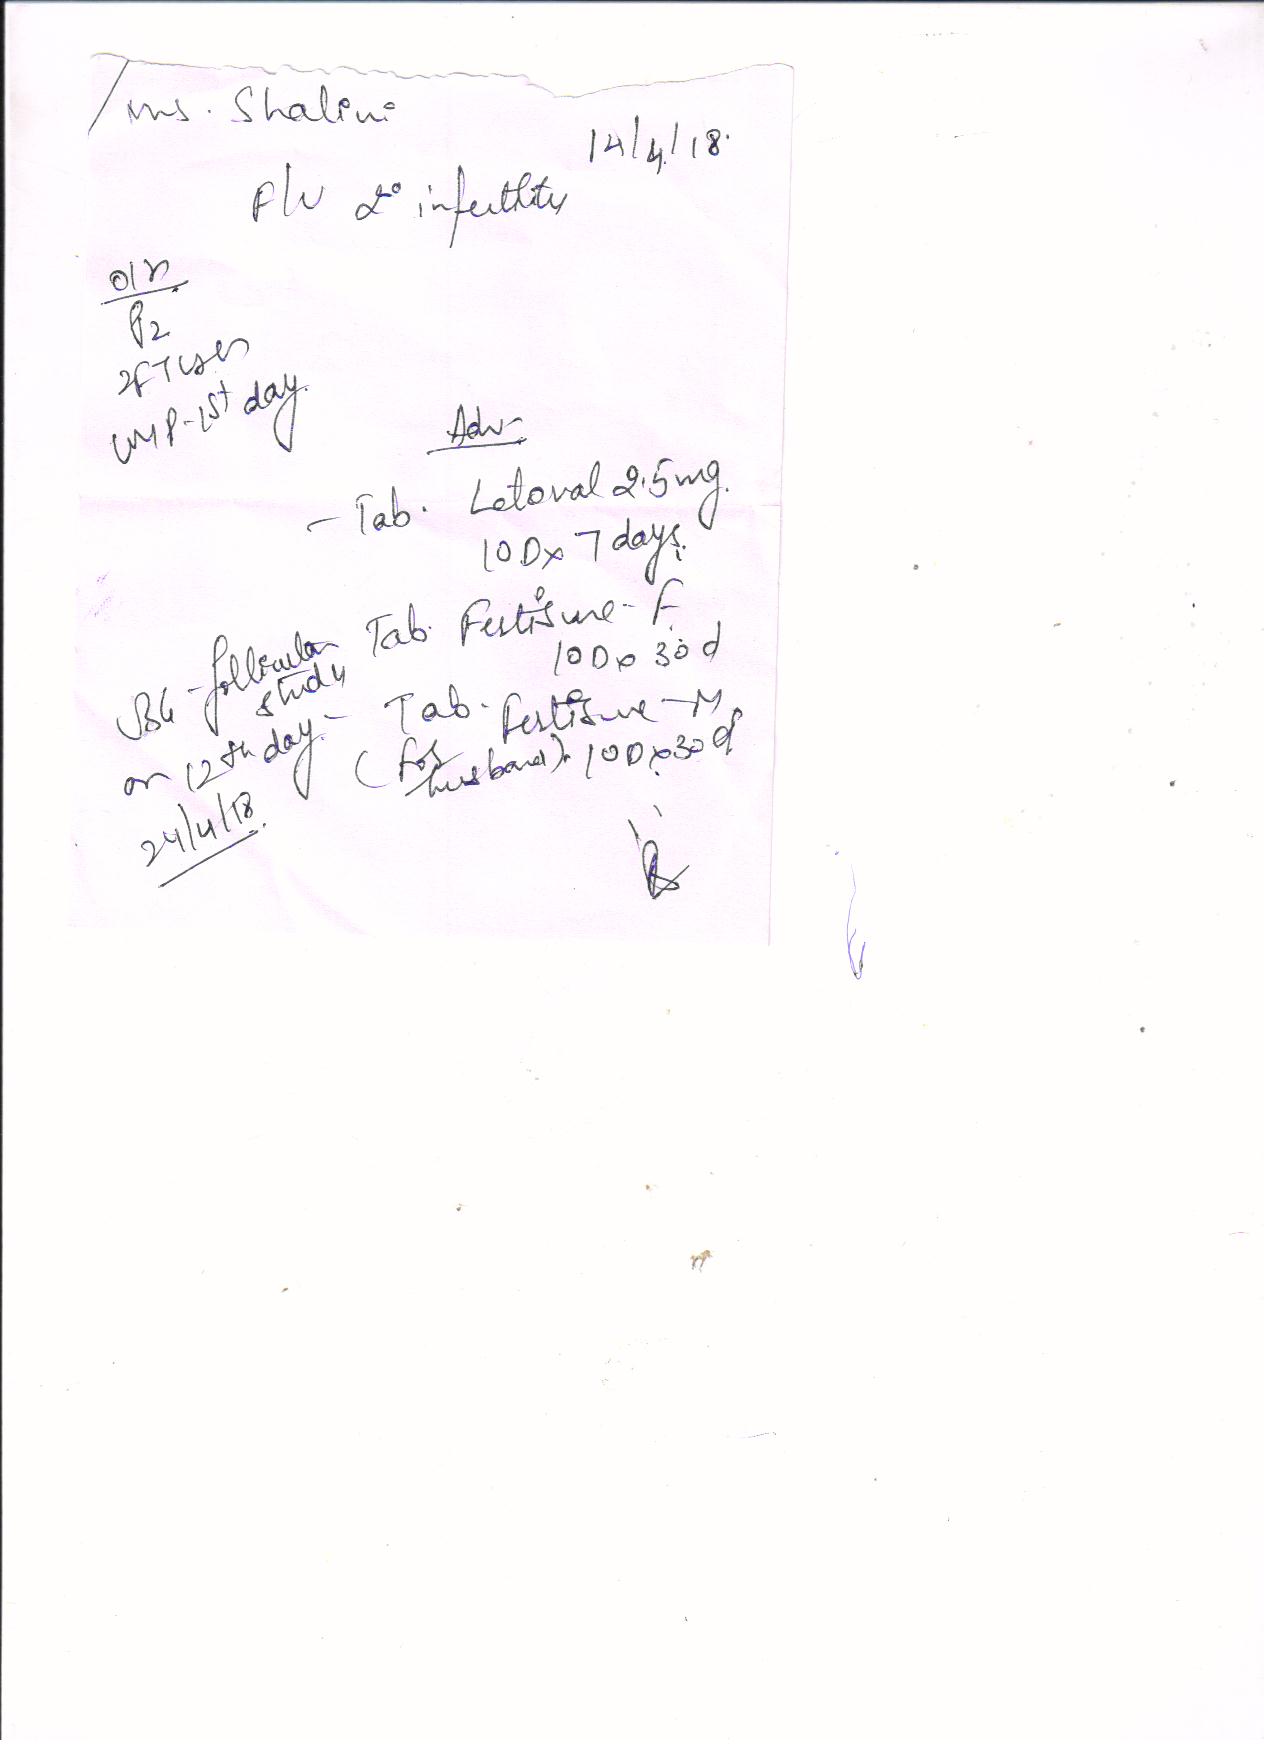 Mrs. Shalini
14/4/18.
F/U 2° infertility
O/H
P2
LMP-1st day.
Adv
- Tab. Letoval 2.5mg.
1OD x 7 days.
Tab. Fertisure-F
1OD x 30 d
- Tab. Fertisure-M
(for husband). 1OD x 30 d
USG - follicular study
on 12th day.
24/4/18.